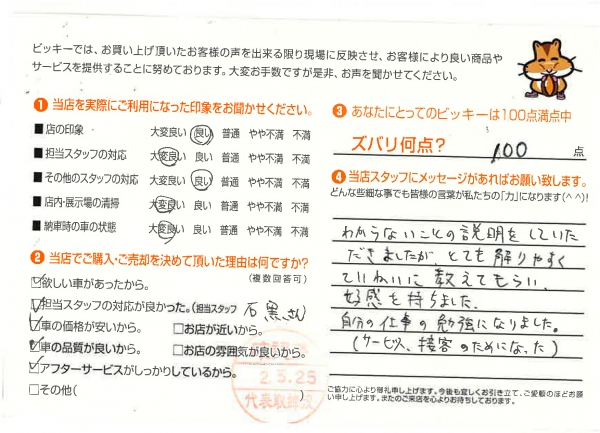 ビッキーでは、お買い上げ頂いたお客様の声を出来る限り現場に反映させ、お客様により良い商品や
サービスを提供することに努めております。大変お手数ですが是非、お声を聞かせてください。
❶ 当店を実際にご利用になった印象をお聞かせください。
■店の印象 大変良い 良い 普通 やや不満 不満
■担当スタッフの対応 大変良い 良い 普通 やや不満 不満
■その他のスタッフの対応 大変良い 良い 普通 やや不満 不満
■店内・展示場の清掃 大変良い 良い 普通 やや不満 不満
■納車時の車の状態 大変良い 良い 普通 やや不満 不満
❷ 当店でご購入・ご売却を決めて頂いた理由は何ですか?
(複数回答可)
□欲しい車があったから。
□担当スタッフの対応が良かった。(担当スタッフ 石黒さん)
□車の価格が安いから。 □お店が近いから。
□車の品質が良いから。 □お店の雰囲気が良いから。
□アフターサービスがしっかりしているから。
□その他( )
2.5.25
代表取締役
❸ あなたにとってのビッキーは100点満点中
ズバリ何点? 100 点
❹ 当店スタッフにメッセージがあればお願い致します。
どんな些細な事でも皆様の言葉が私たちの「力」になります(^^)!
わからないことの説明をしていた
だきましたが、とても解りやすく
ていねいに教えてもらい、
好感を持ちました。
自分の仕事の勉強になりました。
(サービス、接客のためになった)
ご協力に心より御礼申し上げます。今後も宜しくお引き立て、ご愛顧のほどお願
い申し上げます。またのご来店を心よりお待ちしております。